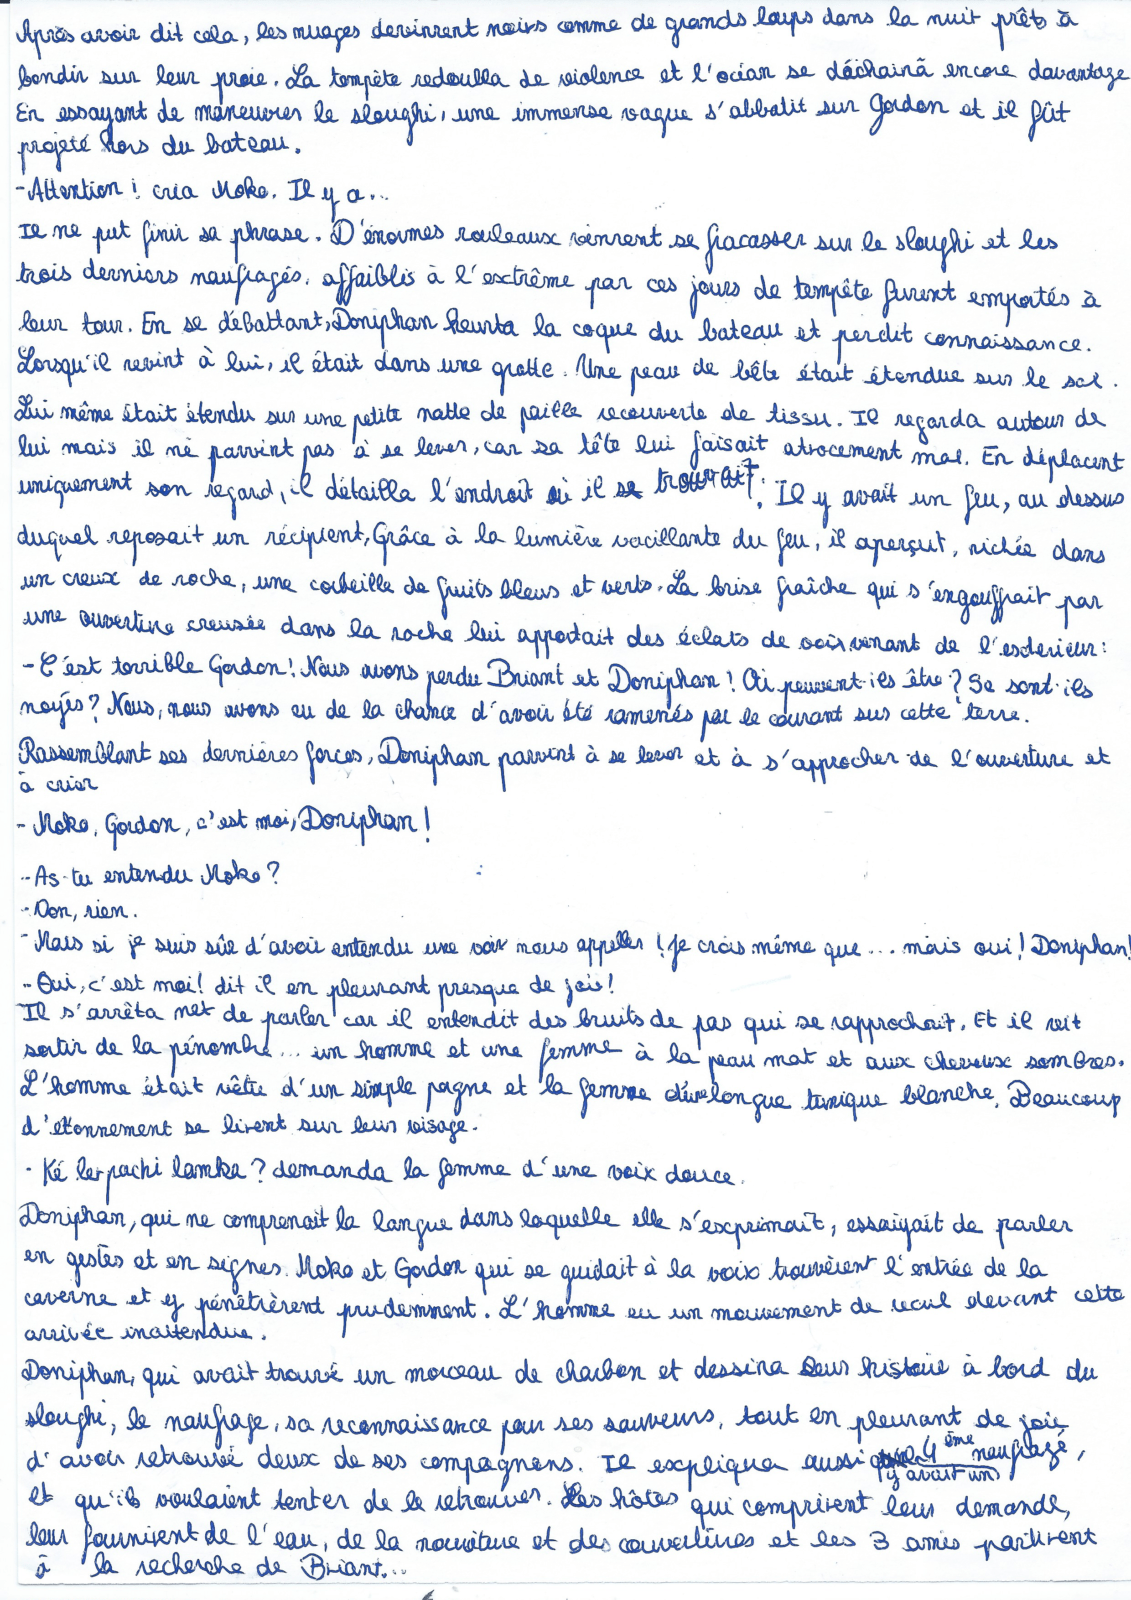 Après avoir dit cela, les nuages devinrent noirs comme de grands loups dans la nuit prêts à
bondir sur leur proie. La tempête redoubla de violence et l'océan se déchaînâ encore davantage
En essayant de maneuvrer le sloughi, une immense vague s'abbatit sur Gordon et il fût
projeté hors du bateau.
- Attention ! cria Moko. Il y a...
Il ne put finir sa phrase. D'énormes rouleaux vinrent se fracasser sur le sloughi et les
trois derniers naufragés, affaiblis à l'extrême par ces jours de tempête furent emportés à
leur tour. En se débattant, Doniphan heurta la coque du bateau et perdit connaissance.
Lorsqu'il revint à lui, il était dans une grotte. Une peau de bête était étendue sur le sol.
Lui même était étendu sur une petite natte de paille recouverte de tissu. Il regarda autour de
lui mais il ne parvint pas à se lever, car sa tête lui faisait atrocement mal. En déplacent
uniquement son regard, il détailla l'endroit où il se trouvait. Il y avait un feu, au dessus
duquel reposait un récipient, Grâce à la lumière vacillante du feu, il aperçut, nichée dans
un creux de roche, une corbeille de fruits bleus et verts. La brise fraîche qui s'engouffrait par
une ouverture creusée dans la roche lui apportait des éclats de voix venant de l'exterieur :
- C'est terrible Gordon ! Nous avons perdu Briant et Doniphan ! Où peuvent-ils être ? Se sont-ils
noyés ? Nous, nous avons eu de la chance d'avoir été ramenés par le courant sur cette terre.
Rassemblant ses dernières forces, Doniphan parvint à se lever et à s'approcher de l'ouverture et
à crier
- Moko, Gordon, c'est moi, Doniphan !
- As-tu entendu Moko ?
- Non, rien.
- Mais si je suis sûr d'avoir entendu une voix nous appeller ! Je crois même que ... mais oui ! Doniphan !
- Oui, c'est moi ! dit il en pleurant presque de joie !
Il s'arrêta net de parler car il entendit des bruits de pas qui se rapprochait. Et il vit
sortir de la pénombre ... un homme et une femme à la peau mat et aux cheveux sombres.
L'homme était vêtu d'un simple pagne et la femme d'une longue tunique blanche. Beaucoup
d'étonnement se lirent sur leur visage.
- Ké ler pachi lamka ? demanda la femme d'une voix douce.
Doniphan, qui ne comprenait la langue dans laquelle elle s'exprimait, essaiyait de parler
en gestes et en signes. Moko et Gordon qui se guidait à la voix trouvèrent l'entrée de la
caverne et y pénétrèrent prudemment. L'homme eu un mouvement de recul devant cette
arrivée inattendue.
Doniphan, qui avait trouvé un morceau de charbon et dessina leur histoire à bord du
sloughi, le naufrage, sa reconnaissance pour ses sauveurs, tout en pleurant de joie
d'avoir retrouvé deux de ses compagnons. Il expliqua aussi qu'il y avait un 4ème naufragé,
et qu'ils voulaient tenter de le retrouver. Les hôtes qui comprirent leur demande,
leur fournirent de l'eau, de la nourriture et des couvertures et les 3 amis partirent
à la recherche de Briant...